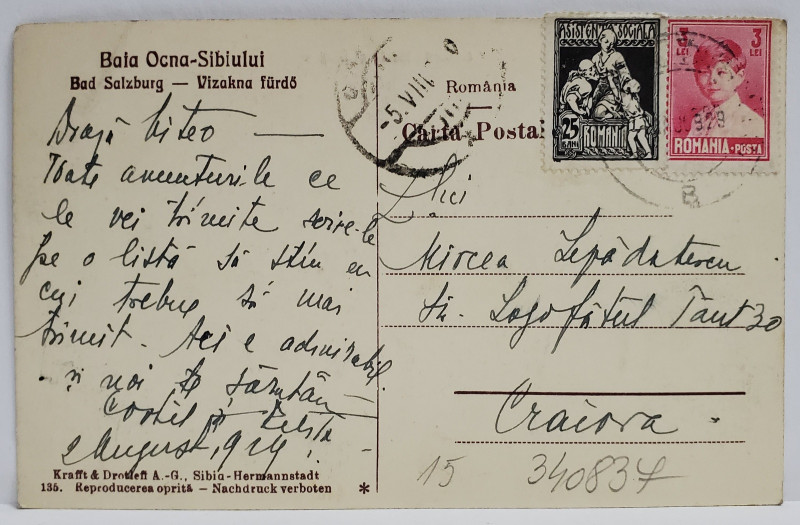 Baia Ocna-Sibiului
Bad Salzburg — Vizakna fürdő
Dragă
Toate anunturile ce
le vei trimite scrie-le
pe o listă să știu eu
cui trebue să mai
trimit. Aci e admirabil
și noi te sărutăm
Costil și
2 August 1929.
Krafft & Drotleff A.-G., Sibiu-Hermannstadt
135. Reproducerea oprită — Nachdruck verboten *
România
Carta Postal
ASISTENȚA SOCIALA
25
BANI
ROMANIA
3 LEI
3 LEI
ROMANIA • POSTA
-5.VIII
929
B
D-lui
Mircea Lepădatescu
Str. Logofătul Tăut 30
Craiova
15 340837